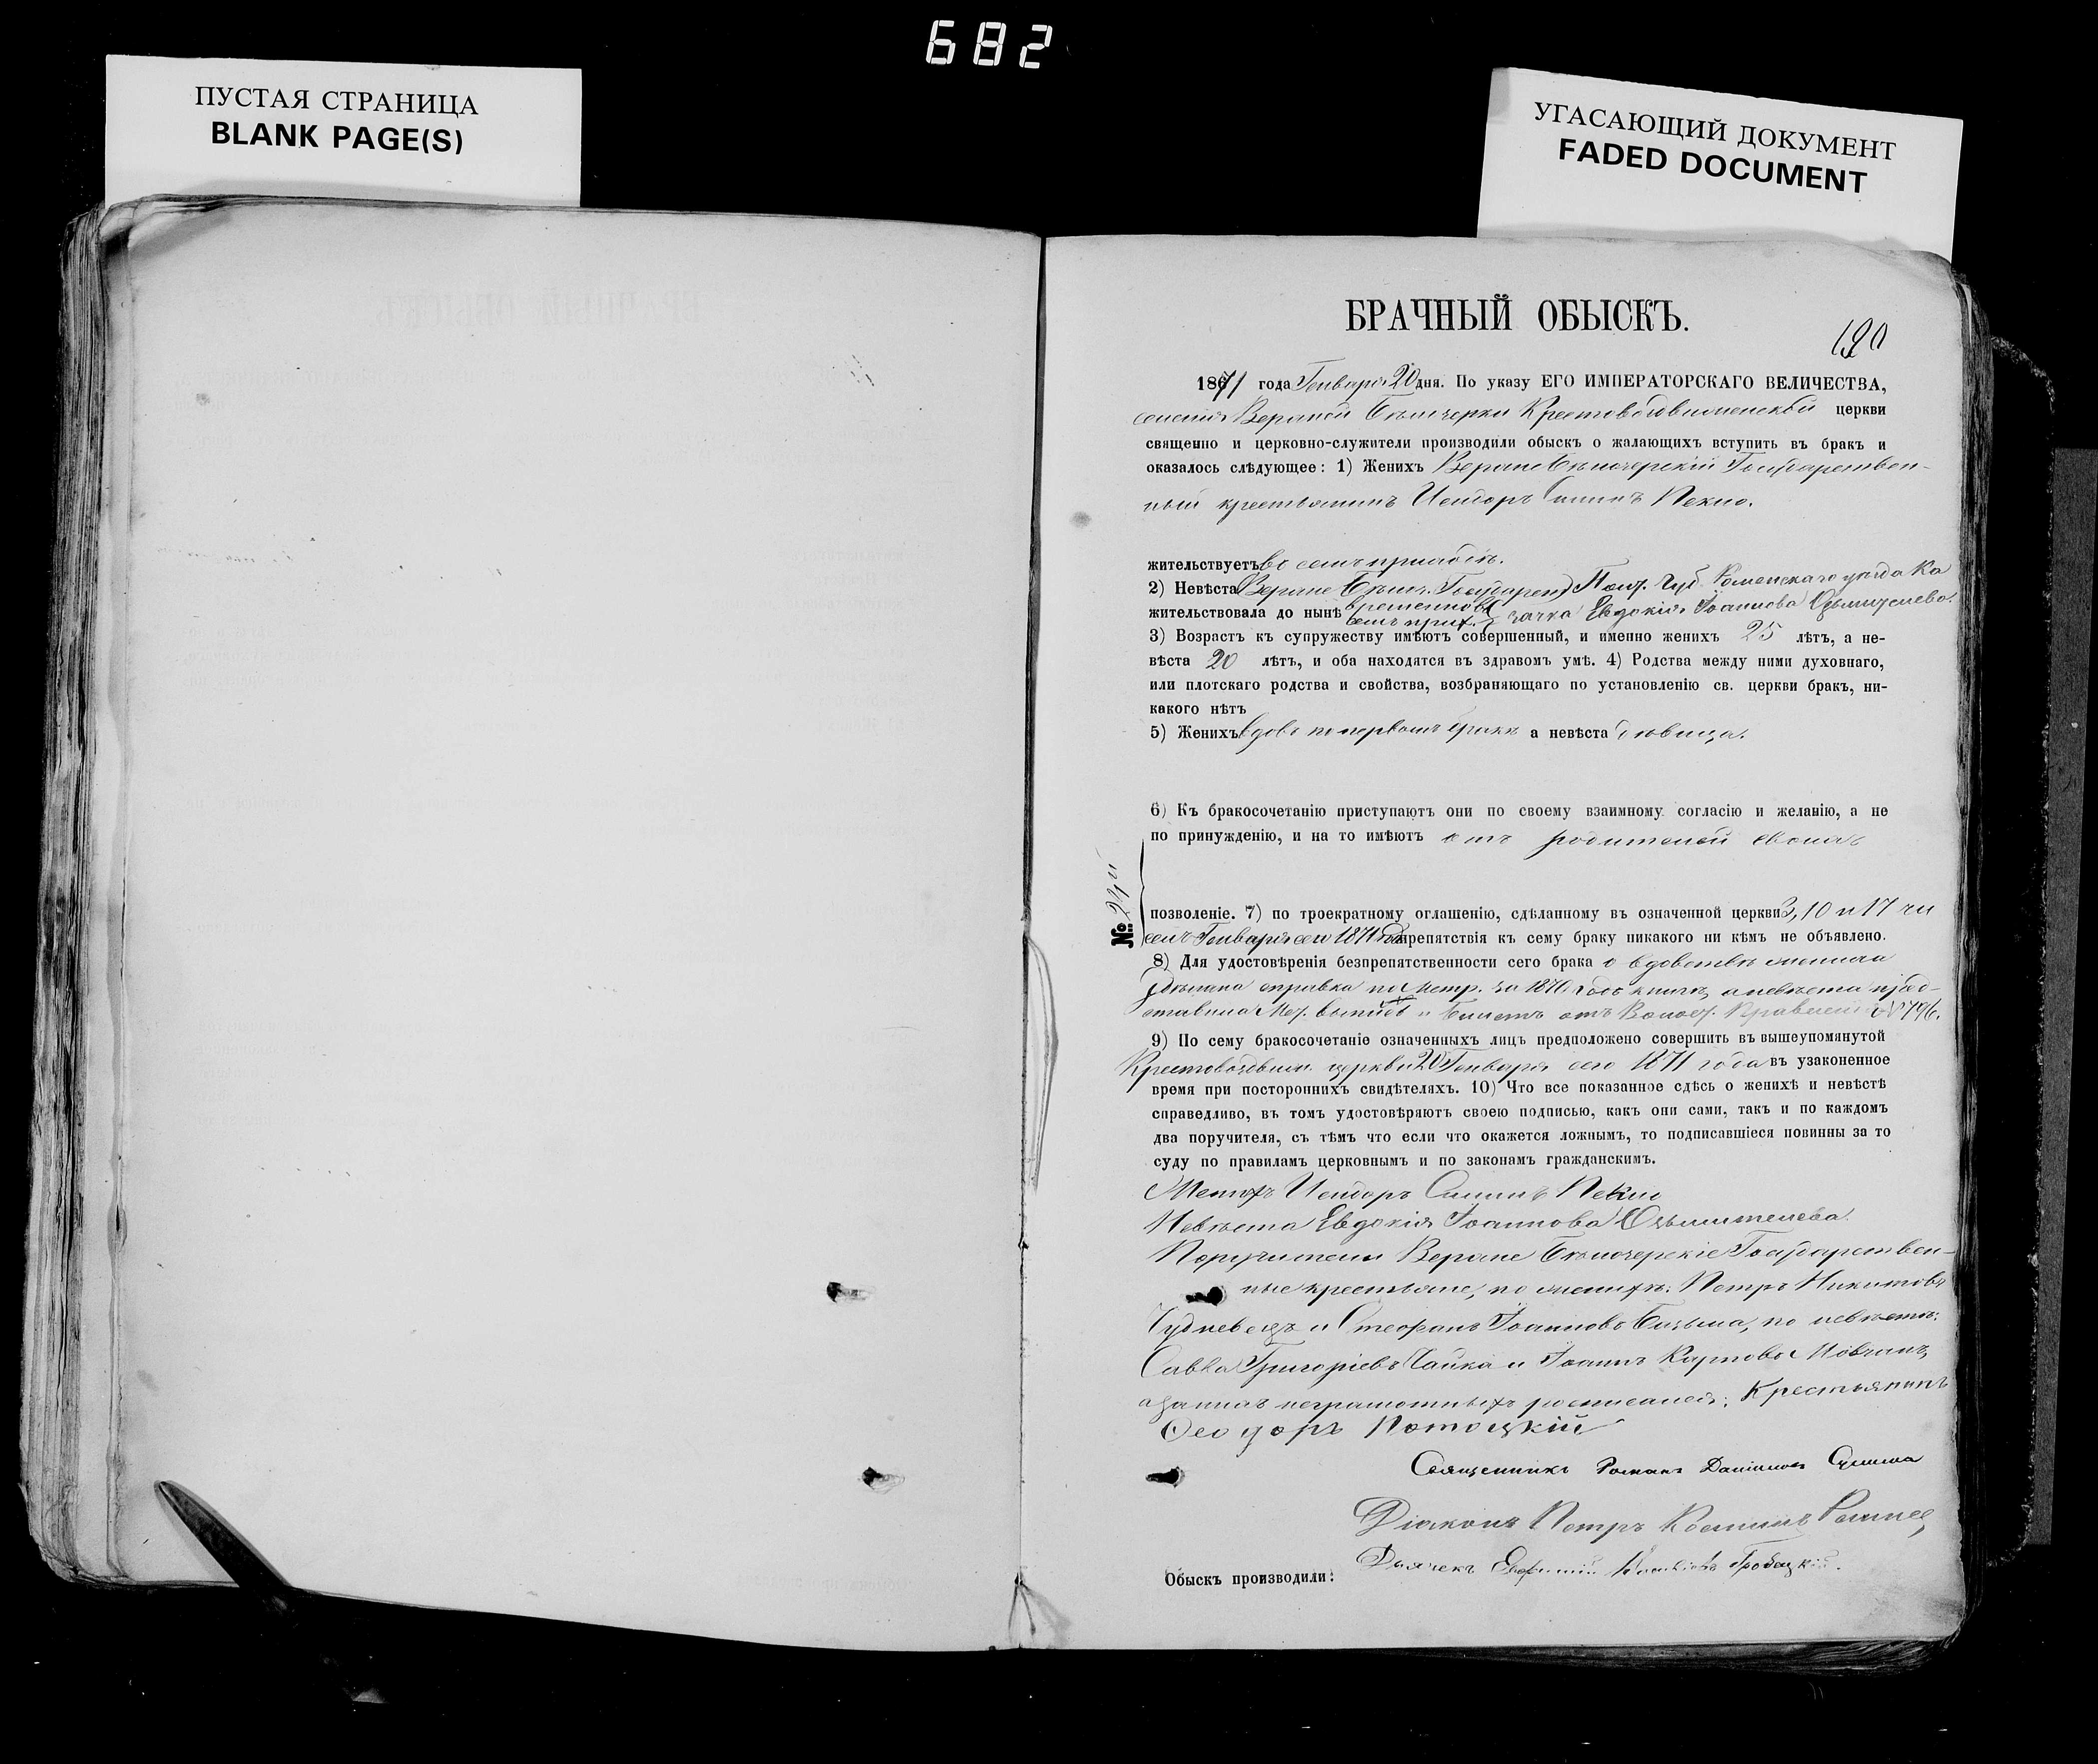 682
ПУСТАЯ СТРАНИЦА
BLANK PAGE(S)
УГАСАЮЩИЙ ДОКУМЕНТ
FADED DOCUMENT
БРАЧНЫЙ ОБЫСКЪ.
190
1871 года Генваря 20 дня. По указу ЕГО ИМПЕРАТОРСКАГО ВЕЛИЧЕСТВА,
селенія Верхней Бѣлозерки Крестовоздвиженской церкви
священно и церковно-служители производили обыскъ о жалающихъ вступить въ бракъ и
оказалось слѣдующее: 1) Женихъ Верхнебѣлозерскій Государствен-
ный крестьянинъ Исидоръ Пекно.
жительствуетъ во семъ приходѣ.
2) Невѣста Верхне Бѣлоз. Государств. Полт. Губ. Роменскаго уѣзда Ка
жительствовала до нынѣ временно въ семъ прих. зачка Евдокія Іоаннова
3) Возрастъ къ супружеству имѣютъ совершенный, и именно женихъ 25 лѣтъ, а не-
вѣста 20 лѣтъ, и оба находятся въ здравомъ умѣ. 4) Родства между ними духовнаго,
или плотскаго родства и свойства, возбраняющаго по установленію св. церкви бракъ, ни-
какого нѣтъ
5) Женихъ вдовъ по первомъ бракѣ а невѣста дѣвица.
6) Къ бракосочетанію приступаютъ они по своему взаимному согласію и желанію, а не
по принужденію, и на то имѣютъ отъ родителей своихъ
№ 24й
позволеніе. 7) по троекратному оглашенію, сдѣланному въ означенной церкви 3, 10 и 17 чи
селъ Генваря сего 1871 года препятствія къ сему браку никакого ни кѣмъ не объявлено.
8) Для удостовѣренія безпрепятственности сего брака о вдовствѣ жениха
сдѣлана справка по Метр. за 1870 годъ книгѣ, а невѣста пред-
ставила Мет. выпись и билетъ отъ Волост. Правленія № 796.
9) По сему бракосочетаніе означенныхъ лицъ предположено совершить въ вышеупомянутой
Крестовоздвиж. церкви 20 Генваря сего 1871 года въ узаконенное
время при постороннихъ свидѣтеляхъ. 10) Что все показанное сдѣсь о женихѣ и невѣстѣ
справедливо, въ томъ удостовѣряютъ своею подписью, какъ они сами, такъ и по каждомъ
два поручителя, съ тѣмъ что если что окажется ложнымъ, то подписавшіеся повинны за то
суду по правиламъ церковнымъ и по законамъ гражданскимъ.
Женихъ Исидоръ Пекно
Невѣста Евдокія Іоаннова
Поручители Верхне Бѣлозерскіе Государствен-
ные крестьяне, по женихѣ: Петръ Никитовъ
Чудневецъ и Стефанъ Іоанновъ по невѣстѣ:
Савва Григоріевъ Чайка и Іоаннъ Карповъ Мовчанъ,
а за нихъ неграмотныхъ росписался: Крестьянинъ
Ѳеодоръ Потоцкій
Священникъ Романъ Даніиловъ
Діаконъ Петръ Космичъ
Дьячекъ Евфимій Гробацкій.
Обыскъ производили: